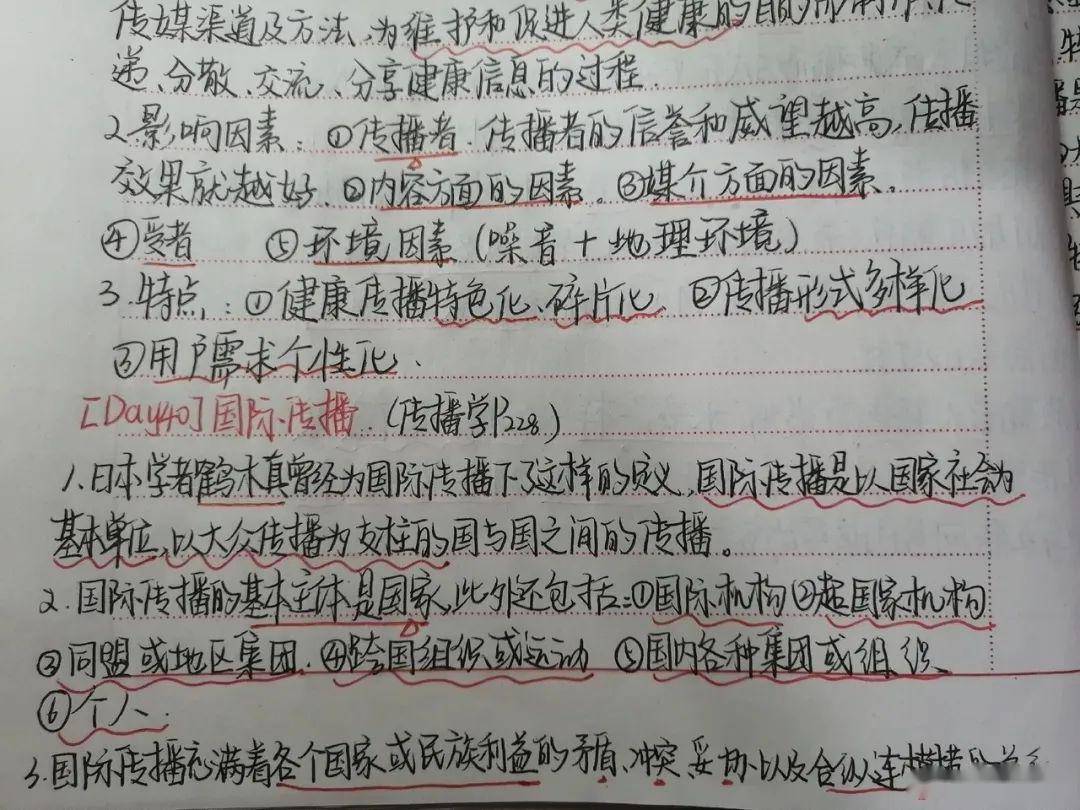 传媒渠道及方法、为维护和促进人类健康的目的而制作、传
递、分散、交流、分享健康信息的过程.
2.影响因素：①传播者.传播者的信誉和威望越高,传播
效果就越好.②内容方面的因素。③媒介方面的因素.
④受者 ⑤环境因素(噪音+地理环境)
3.特点：①健康传播特色化、碎片化 ②传播形式多样化
③用户需求个性化.
[Day40]国际传播.(传播学P228.)
1.日本学者鹤木真曾经为国际传播下了这样的定义,国际传播是以国家社会为
基本单位,以大众传播为支柱的国与国之间的传播。
2.国际传播的基本主体是国家,此外还包括：①国际机构②超国家机构
③同盟或地区集团.④跨国组织或运动 ⑤国内各种集团或组织、
⑥个人.
3.国际传播充满着各个国家或民族利益的矛盾、冲突、妥协以及合纵连横